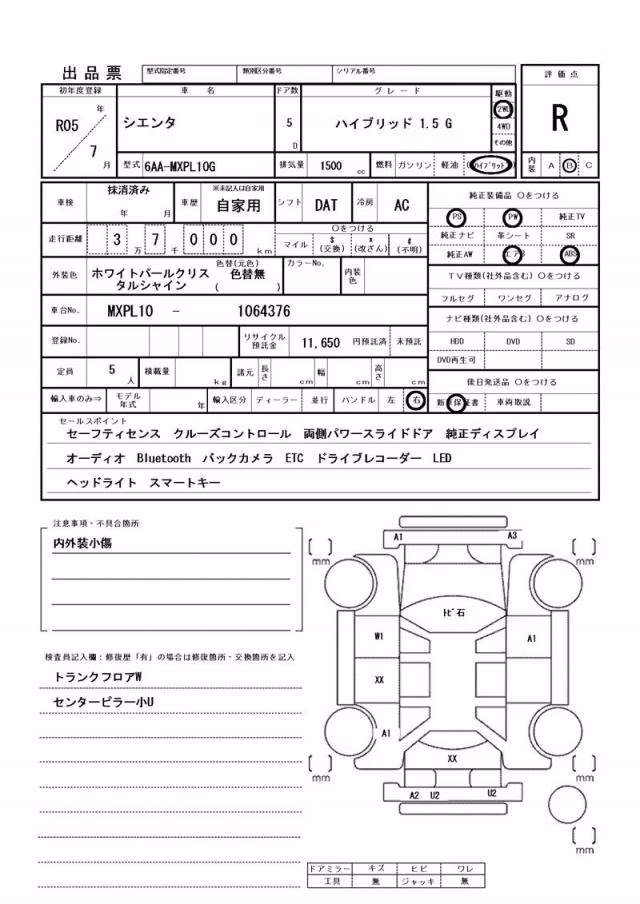 出品票 型式指定番号 類別区分番号 シリアル番号
初年度登録 車名 ドア数 グレード 駆動 評価点
R05 年 7 月 シエンタ 5 D ハイブリッド 1.5 G 2WD 4WD その他 R
型式 6AA-MXPL10G 排気量 1500 cc 燃料 ガソリン 軽油 (ハイブリット) 内装 A B C
車検 抹消済み 年 月 車歴 ※未記入は自家用 自家用 シフト DAT 冷房 AC
純正装備品 〇をつける
PS PW 純正TV
走行距離 3 万 7 千 0 0 0 km 〇をつける マイル $ (交換) * (改ざん) # (不明)
純正ナビ 革シート SR
純正AW エアB ABS
外装色 ホワイトパールクリスタルシャイン 色替(元色) 色替無 ( ) カラーNo. 内装色
TV種類(社外品含む) 〇をつける
フルセグ ワンセグ アナログ
車台No. MXPL10 - 1064376
ナビ種類(社外品含む) 〇をつける
登録No. リサイクル預託金 11,650 円預託済 未預託
HDD DVD SD
DVD再生可
定員 5 人 積載量 kg 諸元 長さ cm 幅 cm 高さ cm
後日発送品 〇をつける
輸入車のみ⇒ モデル年式 年 輸入区分 ディーラー 並行 ハンドル 左 右
新車保証書 車両取説
セールスポイント
セーフティセンス クルーズコントロール 両側パワースライドドア 純正ディスプレイ
オーディオ Bluetooth バックカメラ ETC ドライブレコーダー LED
ヘッドライト スマートキー
注意事項・不具合箇所
内外装小傷
検査員記入欄：修復歴「有」の場合は修復箇所・交換箇所を記入
トランクフロアW
センターピラー小U
A1 A3
[ ] mm [ ] mm
ﾄﾋﾞ石
W1 A1
XX
A1
XX
[ ] mm [ ] mm
A2 U2 U2
[ ] mm
ドアミラー キズ ヒビ ワレ
工具 無 ジャッキ 無